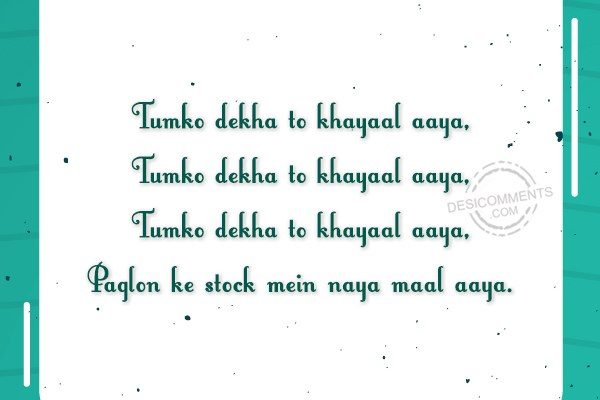 Tumko dekha to khayaal aaya,
Tumko dekha to khayaal aaya,
Tumko dekha to khayaal aaya,
Paglon ke stock mein naya maal aaya.
DESICOMMENTS
.COM